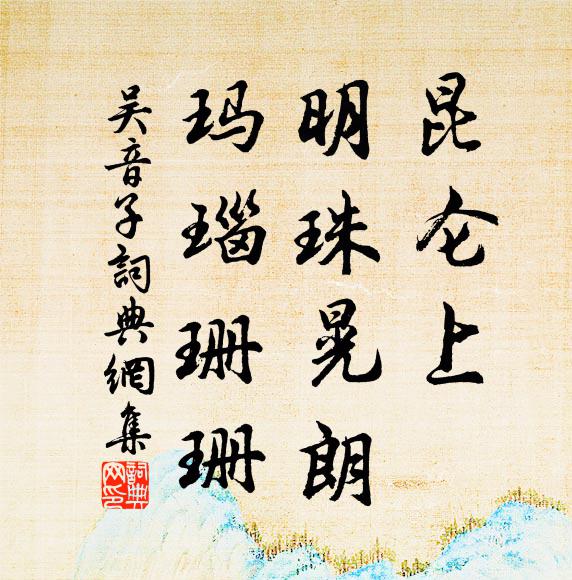 昆仑上
明珠晃朗
玛瑙珊珊
吴音子詞典網集
詞典
网印